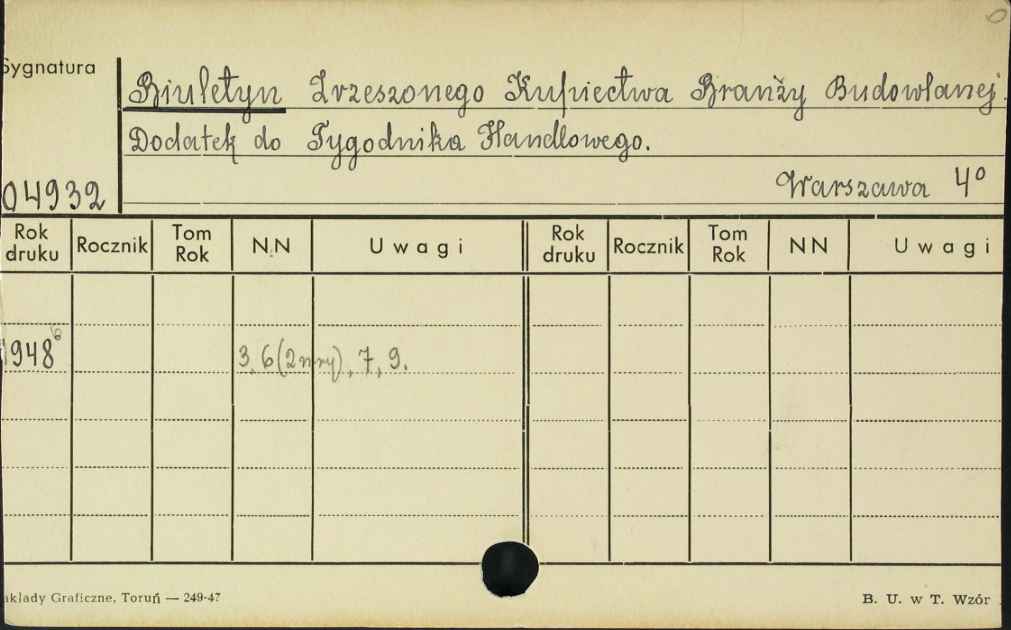 Sygnatura
Biuletyn Zrzeszonego Kupiectwa Branży Budowlanej.
Dodatek do Tygodnika Handlowego.
04932
Warszawa 4°
Rok druku Rocznik Tom Rok N.N Uwagi Rok druku Rocznik Tom Rok NN Uwagi
1948 6 3, 6 (2 nry), 7, 9.
akłady Graficzne, Toruń — 249-47
B. U. w T. Wzór